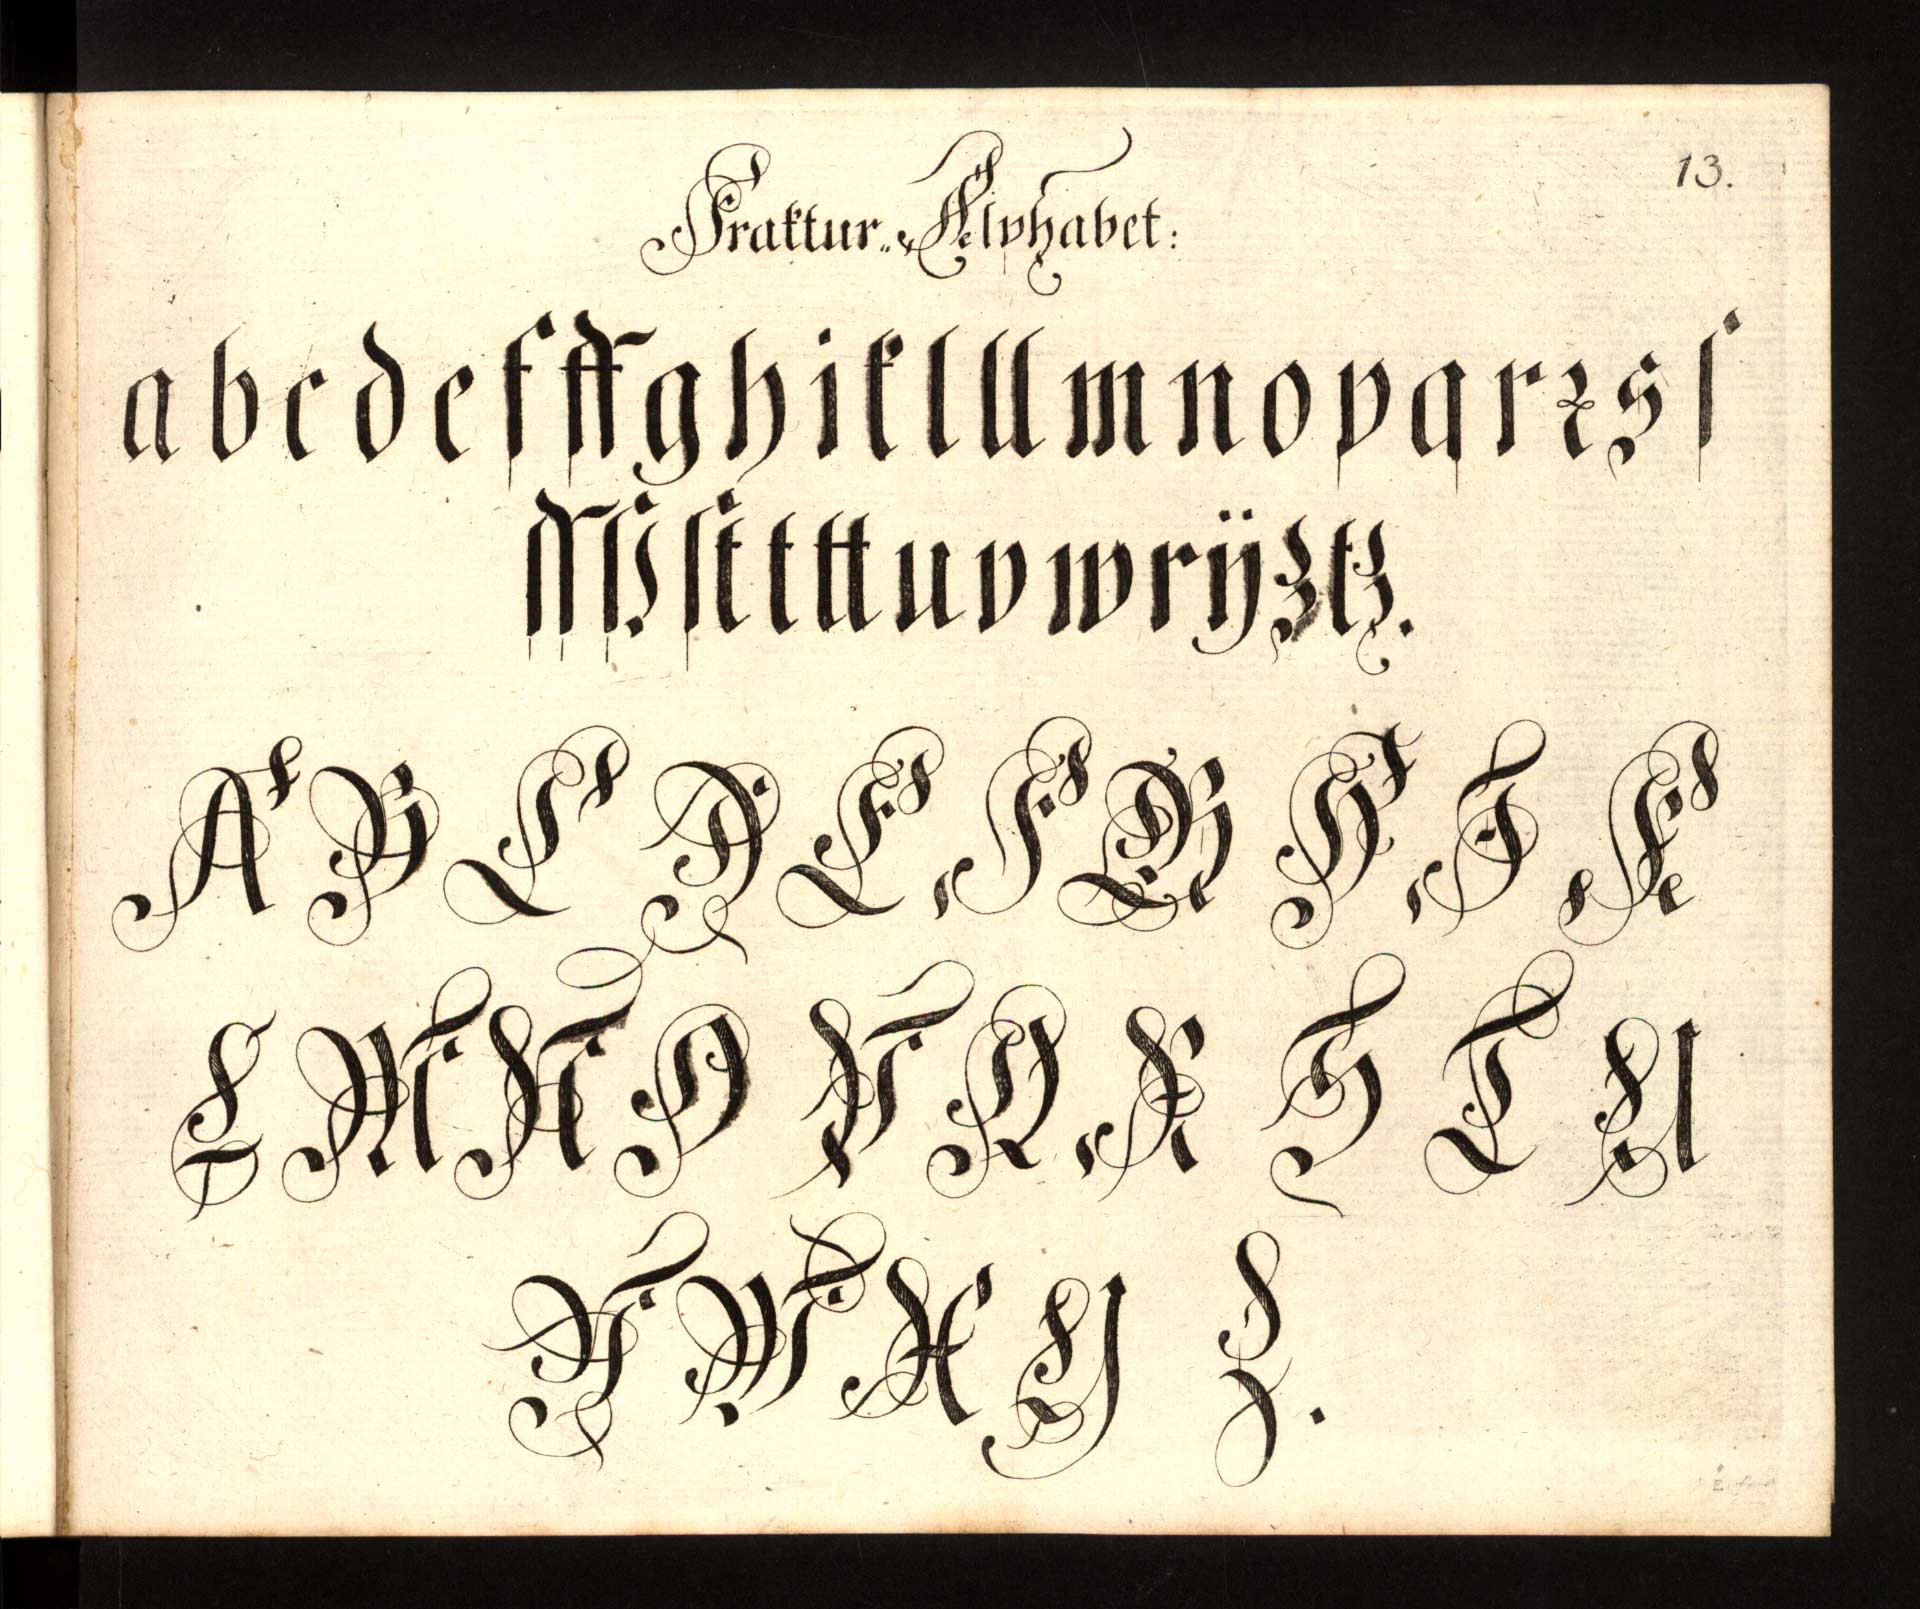 13.
Fraktur„ Alphabet:
a b c d e f ff g h i k l ll m n o p q r ꝛ s ſ
ſſ ß ſt t tt u v w x ÿ z tz.
A B C D E F G H I K
L M N O P Q R S T U
V W X Y Z.